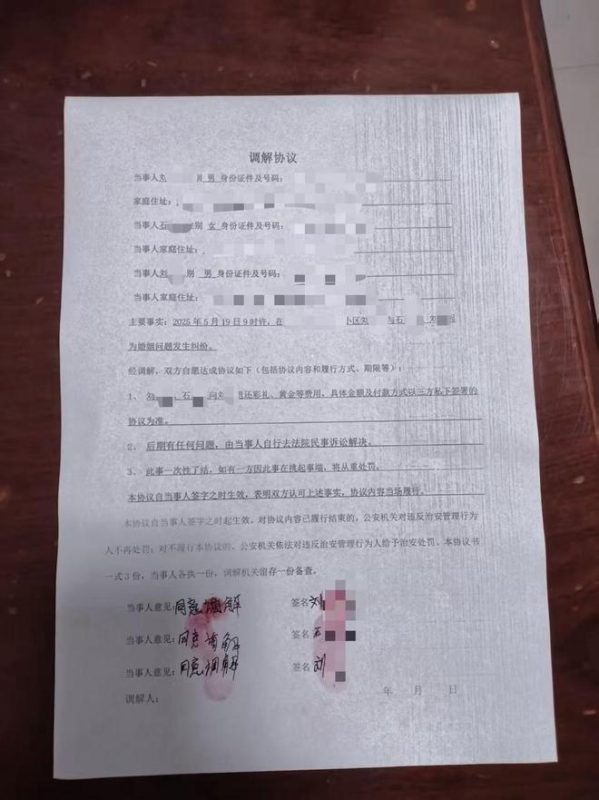 调解协议
当事人 男 身份证件及号码：
家庭住址：
当事人石 别 女 身份证件及号码：
当事人家庭住址：
当事人刘 别 男 身份证件及号码：
当事人家庭住址：
主要事实：2025年5月19日9时许，在 小区刘 与石
为婚姻问题发生纠纷。
经调解，双方自愿达成协议如下（包括协议内容和履行方式、期限等）：
1、刘 、石 向 还彩礼、黄金等费用，具体金额及付款方式以三方私下签署的
协议为准。
2、后期有任何问题，由当事人自行去法院民事诉讼解决。
3、此事一次性了结，如有一方因此事在挑起事端，将从重处罚。
本协议自当事人签字之时生效，表明双方认可上述事实，协议内容当场履行。
本协议自当事人签字之时起生效。对协议内容已履行结束的，公安机关对违反治安管理行为
人不再处罚；对不履行本协议的、公安机关依法对违反治安管理行为人给予治安处罚。本协议书
一式3份，当事人各执一份，调解机关留存一份备查。
当事人意见：同意调解 签名 刘
当事人意见：同意调解 签名 石
当事人意见：同意调解 签名 刘
调解人：
年 月 日